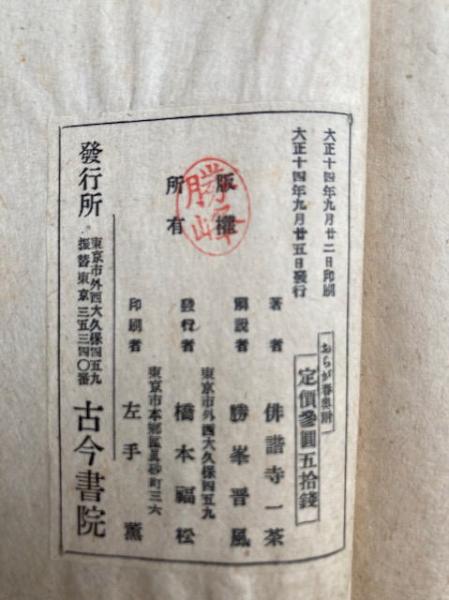 大正十四年九月廿二日印刷
大正十四年九月廿五日發行
おらが春奥附
定價參圓五拾錢
版權
所有
勝峯
著者 俳諧寺一茶
解説者 勝峯晋風
東京市外西大久保四五九
發行者 橋本福松
東京市本郷區眞砂町三六
印刷者 左手薫
發行所
東京市外西大久保四五九
振替東京三五三四〇番
古今書院